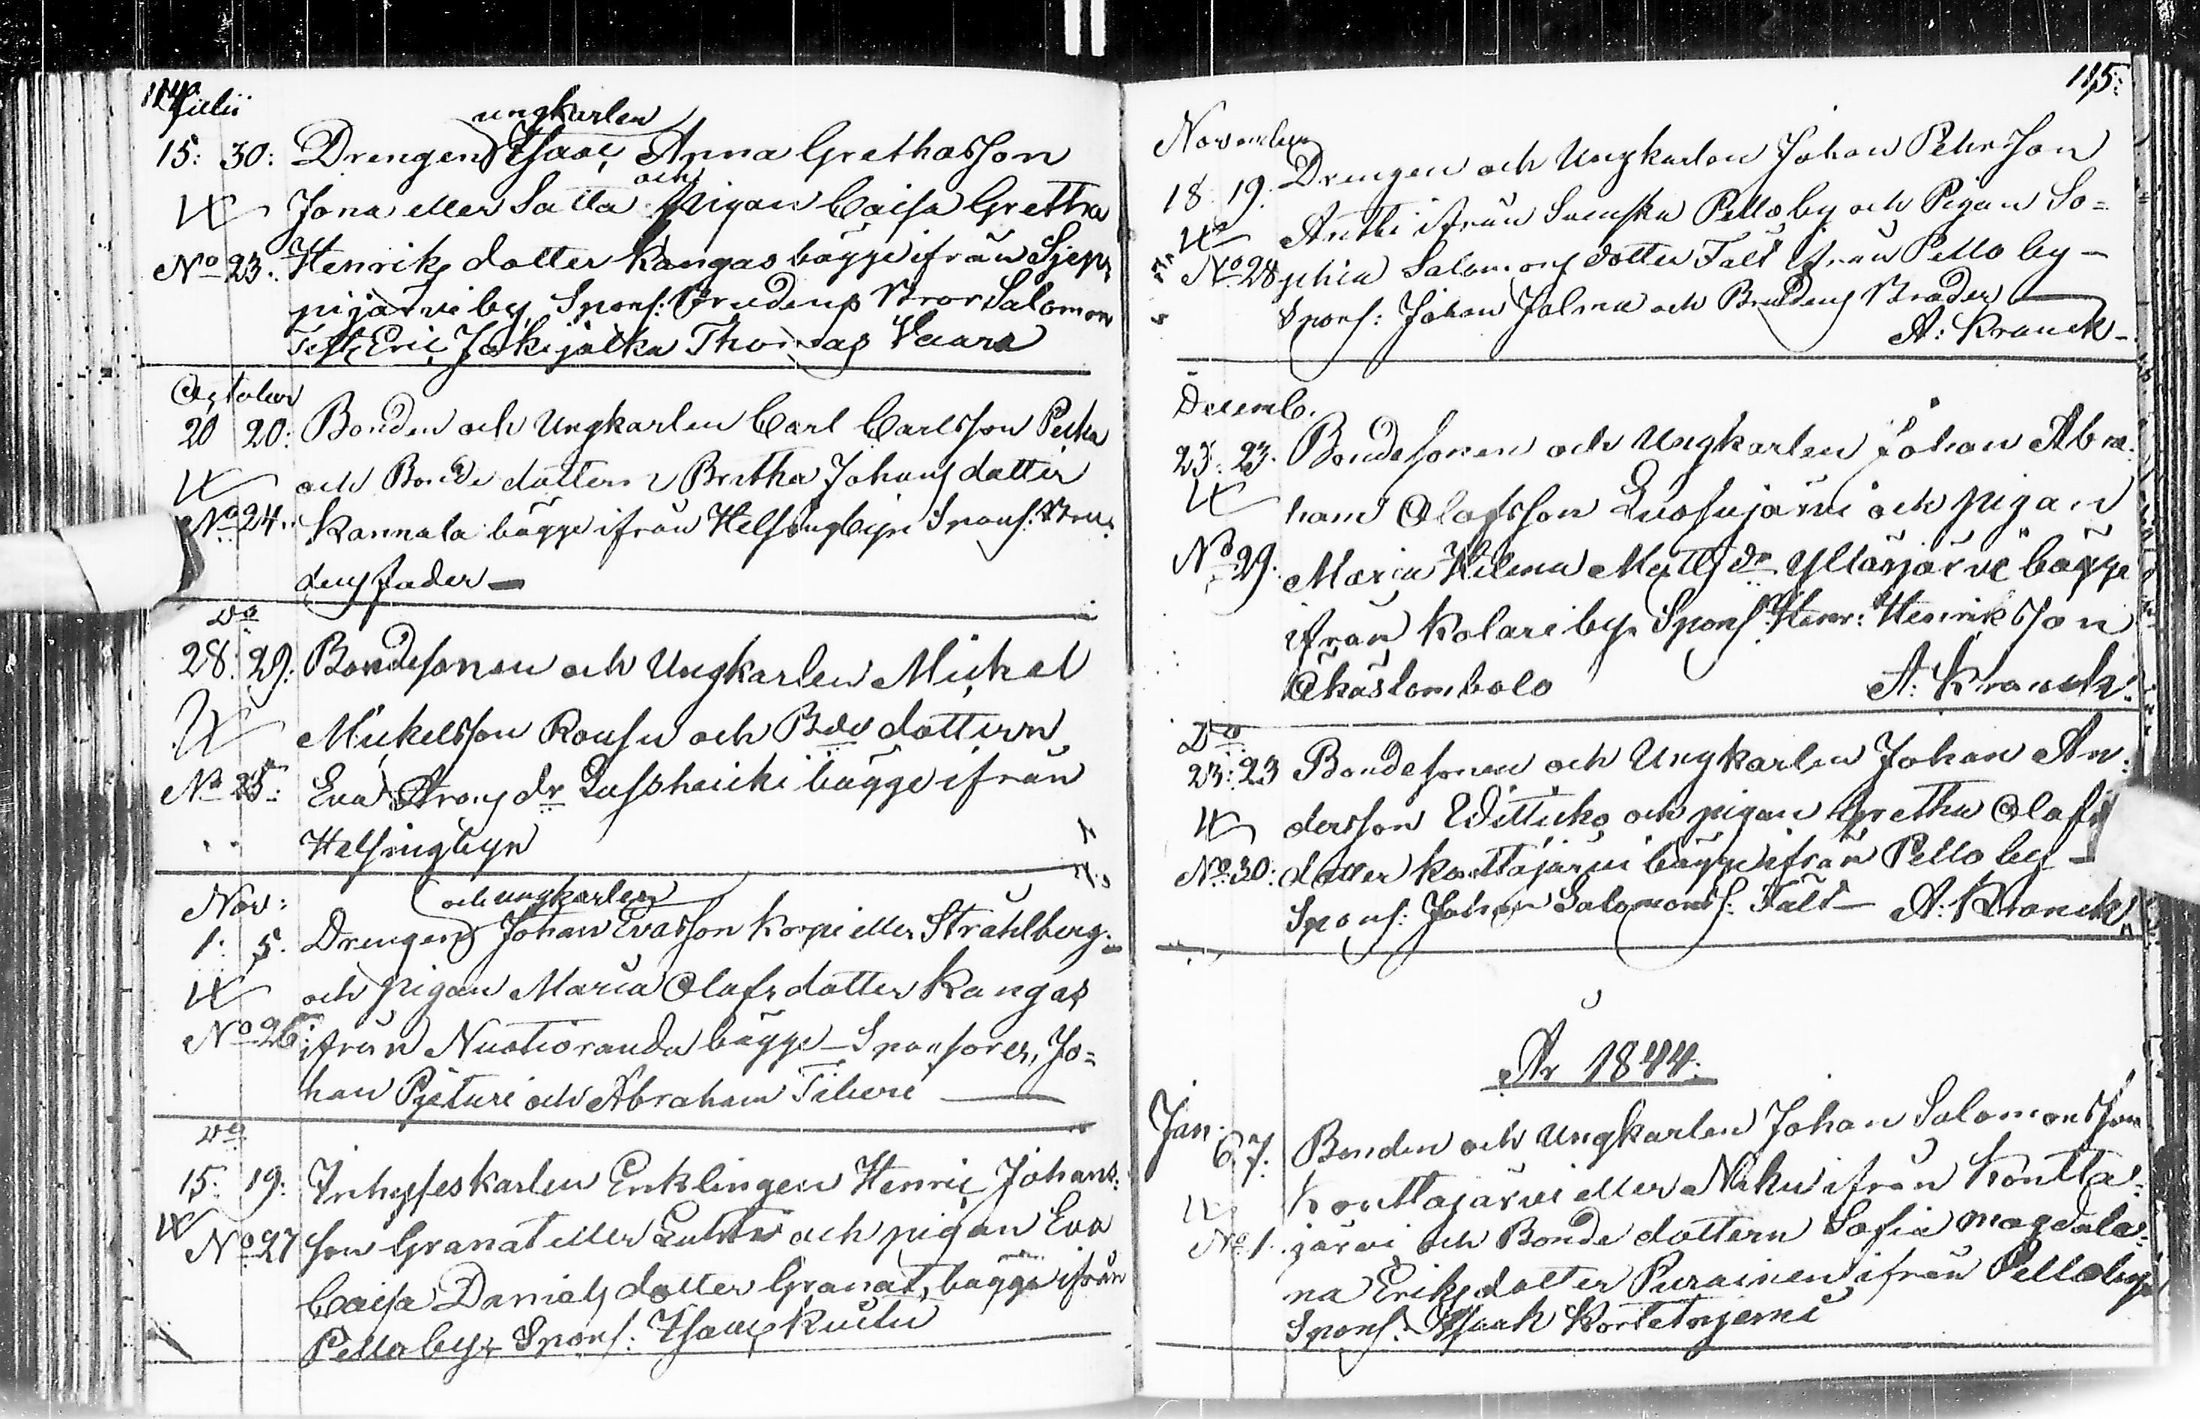 114
Julii
ungkarlen
15: 30: Drengen Isaac Anna Grethasson
Jona eller Satta och Pigan Caisa Gretha
No 23: Henriks dotter Kangas bägge ifrån Sjep-
pijärvi by, Spons: Brudens Bror Salomon
Test: Eric Jokijalka Thomas Vaara
October
20 20: Bonden och Ungkarlen Carl Carlsson Pecka
och Bonde dottern Britha Johans dotter
No 24: Kannala bägge ifrån Helsingbyn Spons: Bru-
dens fader —
Do
28: 29: Bondesonen och Ungkarlen Mickel
Mickelsson Rousu och Bde dottern
No 25: Eva Arons dr bägge ifrån
Helsingbyn
Nov:
och ungkarlen
1: 5. Drengen Johan Evasson Korpi eller Stråhlberg
och pigan Maria Olafs dotter Kangas
No 26: ifrån Nuotioranda bägge — Sponsorer, Jo=
han Pjeturi och Abraham Tiberi
Do
15: 19: Inhyseskarlen Enklingen Henric Johans-
No 27 son Granat eller Luhta och pigan Eva
Caisa Daniels dotter Granat, bägge ifrån
Pello by, Spons: Isaac Kuitu
115:
November
18. 19. Drengen och Ungkarlen Johan Pehrsson
Anthi ifrån Svenska Pello by och Pigan So=
No 28 phia Salomons dotter Fält ifrån Pello by —
Spons: Johan Jolma och Brudens Broder
A: Kranck —
Decemb.
23: 23. Bondesonen och Ungkarlen Johan Abra-
ham Olofsson Luosujärvi och pigan
No 29: Maria Helena Matts dr Ylläsjärvi bägge
ifrån Kolari by, Spons: Henr: Henriksson
Äkäslombolo A: Kranck.
Do
23: 23 Bondesonen och Ungkarlen Johan An-
dersson Witticko och pigan Gretha Olofs
No 30: dotter Konttajärvi bägge ifrån Pello by —
Spons: Johan Salomonss: Fält — A: Kranck
År 1844.
Jan:
6 7. Bonden och Ungkarlen Johan Salomonsson
Konttajärvi eller Niku ifrån Kontta-
No 1. järvi och Bonde dottern Sofia Magdale-
na Eriks dotter Purainen ifrån Pello by
Spons: Isaak Kortetnjemi